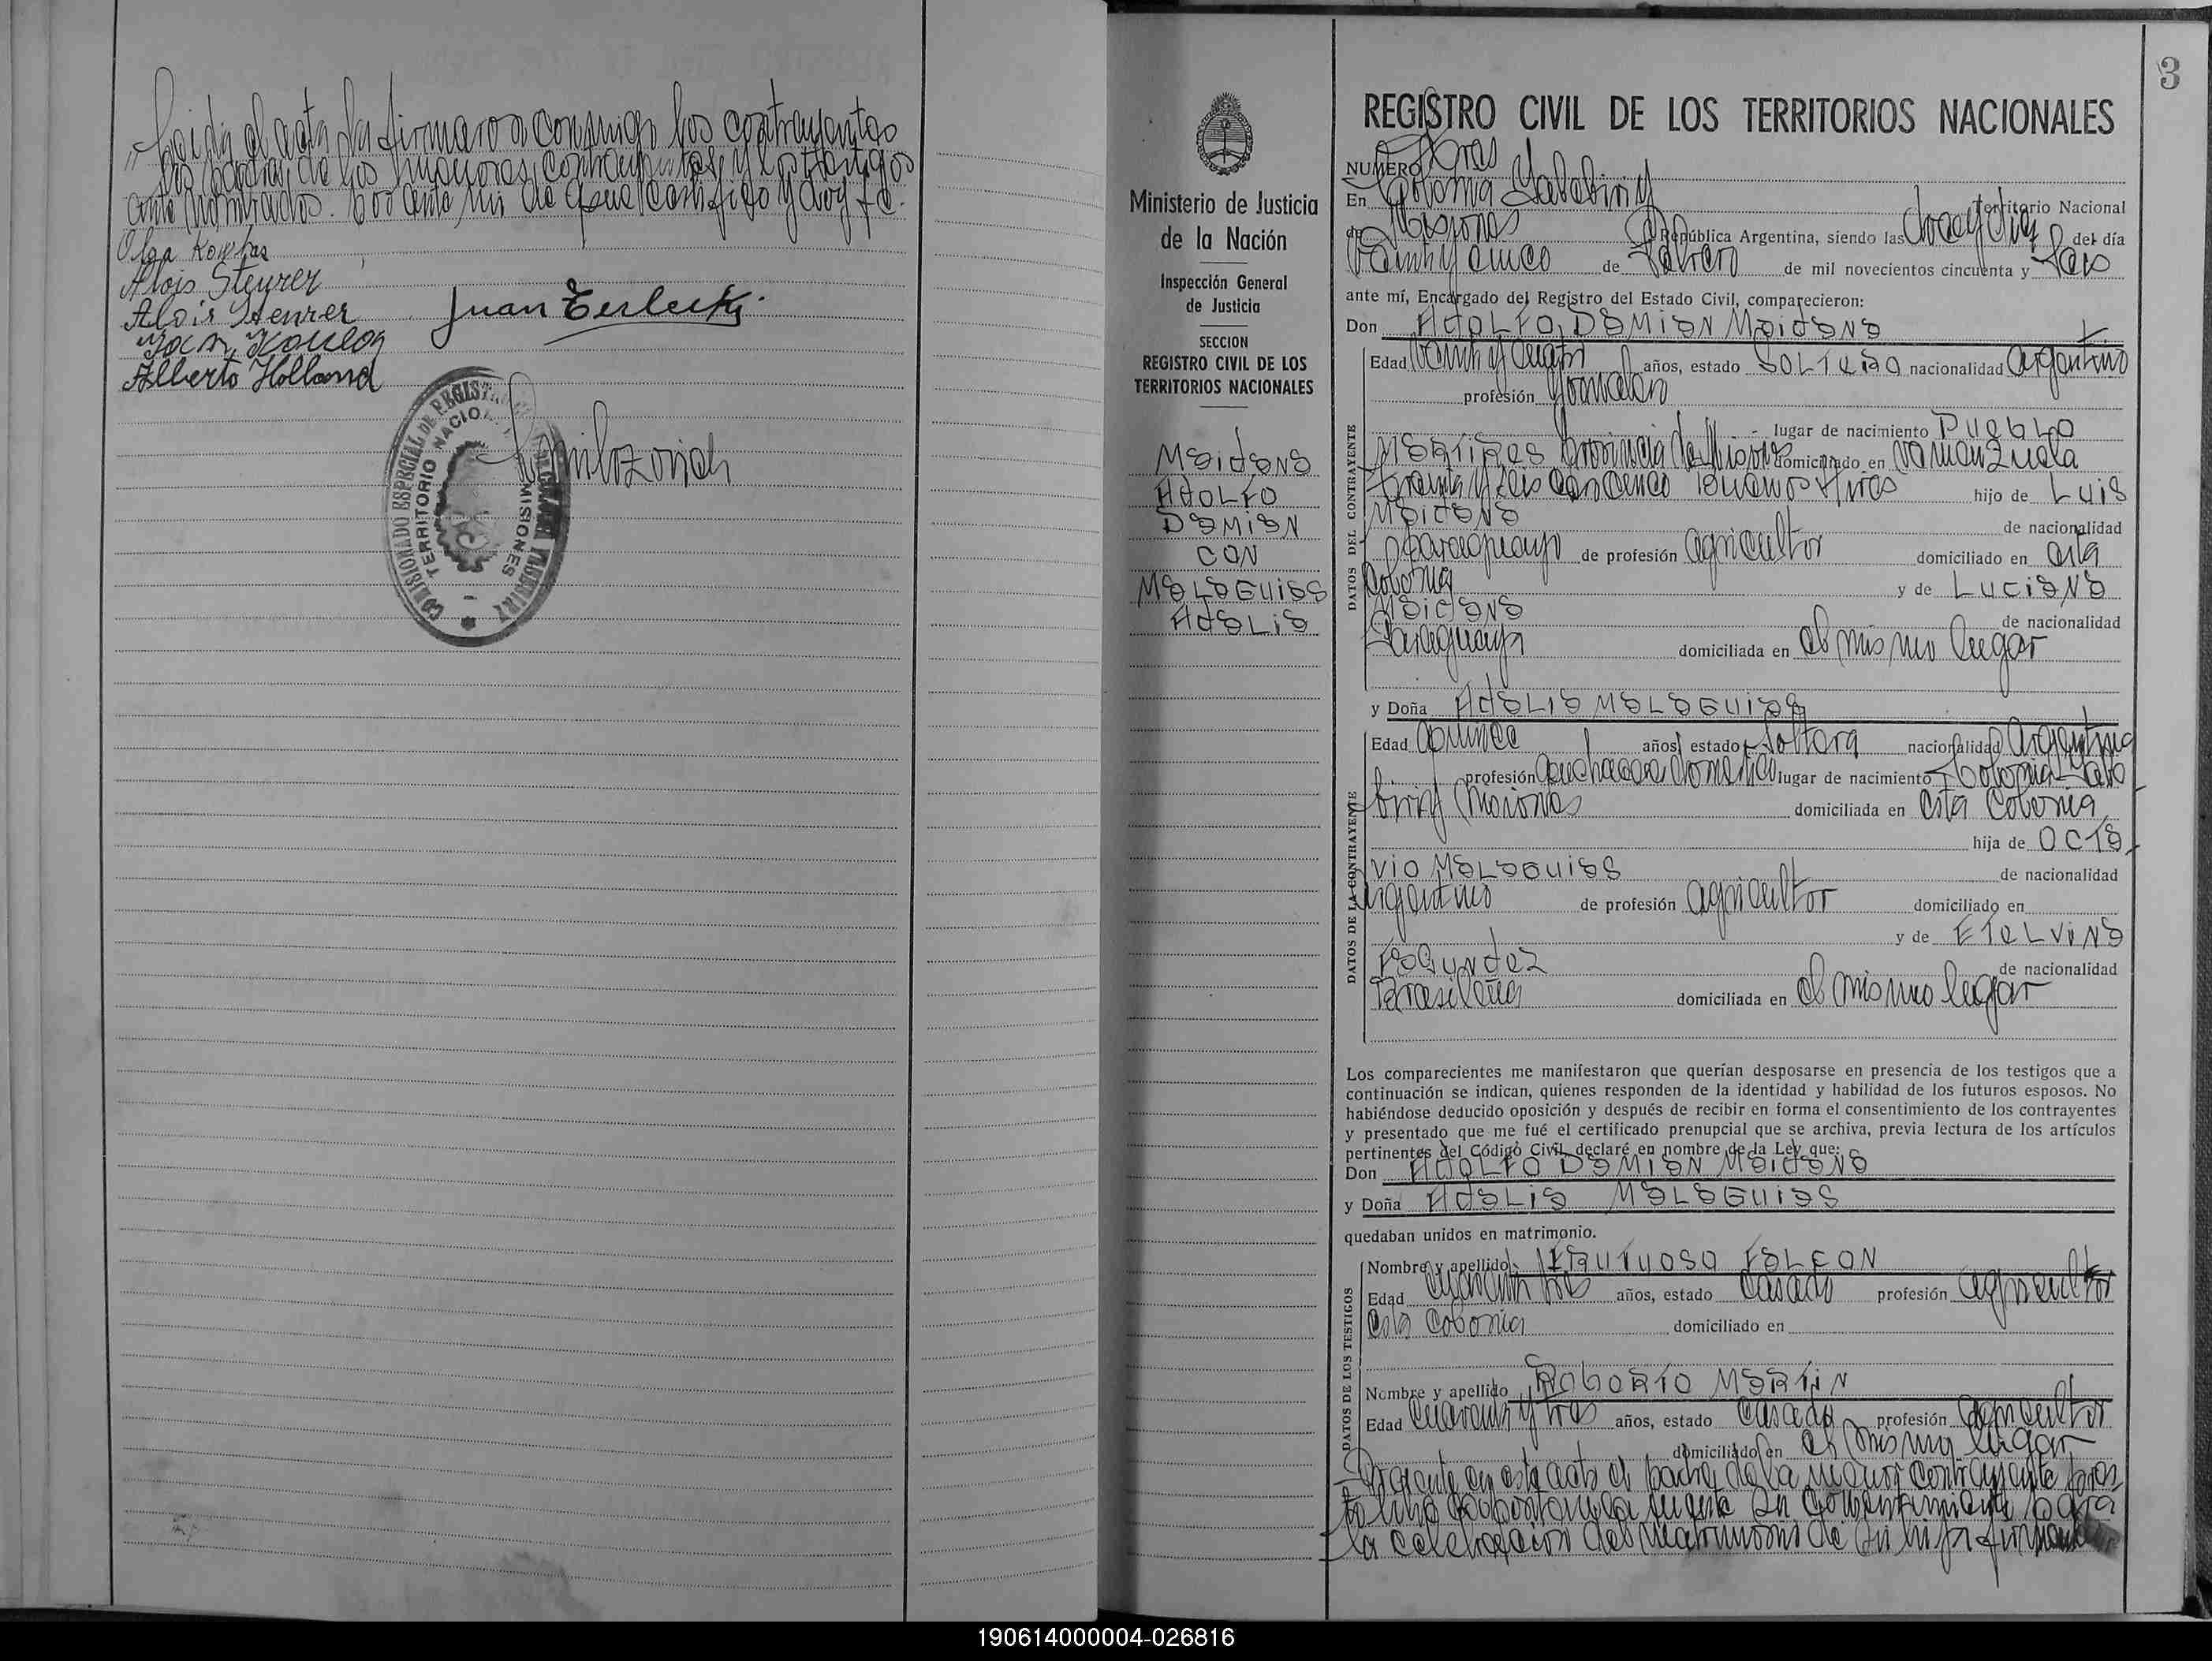 Leida el acta la firmaron conmigo los contrayentes
los padres de los menores contrayentes y los testigos
ante nombrados. Por ante mi de que certifico y doy fe.
Olga
Alois Steurer
Alois Steurer
Juan
Alberto Holland
COMISIONADO ESPECIAL DE REGISTRO
TERRITORIO NACIONAL
MISIONES
3
Ministerio de Justicia
de la Nación
Inspección General
de Justicia
SECCION
REGISTRO CIVIL DE LOS
TERRITORIOS NACIONALES
MaidaNa
AdOLFO
DaMiaN
CON
MaLaGuias
AdaLia
REGISTRO CIVIL DE LOS TERRITORIOS NACIONALES
NUMERO Tres
En Colonia Territorio Nacional
de Misiones República Argentina, siendo las doce y diez del día
Veinti y cinco de Febrero de mil novecientos cincuenta y Seis
ante mí, Encargado del Registro del Estado Civil, comparecieron:
Don AdOLFO DaMiaN MaidaNa
Edad Veinti y cuatro años, estado SOLTeRO nacionalidad Argentino
profesión Jornalero
lugar de nacimiento PuebLO
MaRTiRes Provincia de Misiones domiciliado en Vamenzuela
treinta y seis Buenos Aires hijo de Luis
MaidaNa de nacionalidad
paraguayo de profesión agricultor domiciliado en esta
Colonia y de LuciaNa
MaidaNa de nacionalidad
Paraguaya domiciliada en el mismo lugar
y Doña AdaLia MaLaGuias
Edad quince años, estado Soltera nacionalidad Argentina
profesión quehaceres domestico lugar de nacimiento Colonia
Misiones domiciliada en esta Colonia
hija de OCTa
ViO MaLaGuias de nacionalidad
Argentino de profesión agricultor domiciliado en
y de ETeLViNa
FaGuNdeZ de nacionalidad
Brasileña domiciliada en el mismo lugar
Los comparecientes me manifestaron que querían desposarse en presencia de los testigos que a
continuación se indican, quienes responden de la identidad y habilidad de los futuros esposos. No
habiéndose deducido oposición y después de recibir en forma el consentimiento de los contrayentes
y presentado que me fué el certificado prenupcial que se archiva, previa lectura de los artículos
pertinentes del Código Civil, declaré en nombre de la Ley que:
Don AdOLFO DaMiaN MaidaNa
y Doña AdaLia MaLaGuias
quedaban unidos en matrimonio.
Nombre y apellido FaLCON
Edad años, estado Casado profesión agricultor
Esta Colonia domiciliado en
Nombre y apellido RobeRTO MaRTiN
Edad Cuarenta y tres años, estado Casado profesión agricultor
domiciliado en el mismo lugar
Presente en este acto el padre de la menor contrayente pres
su consentimiento para
la celebracion del matrimonio de su hija
DATOS DEL CONTRAYENTE
DATOS DE LA CONTRAYENTE
DATOS DE LOS TESTIGOS
190614000004-026816